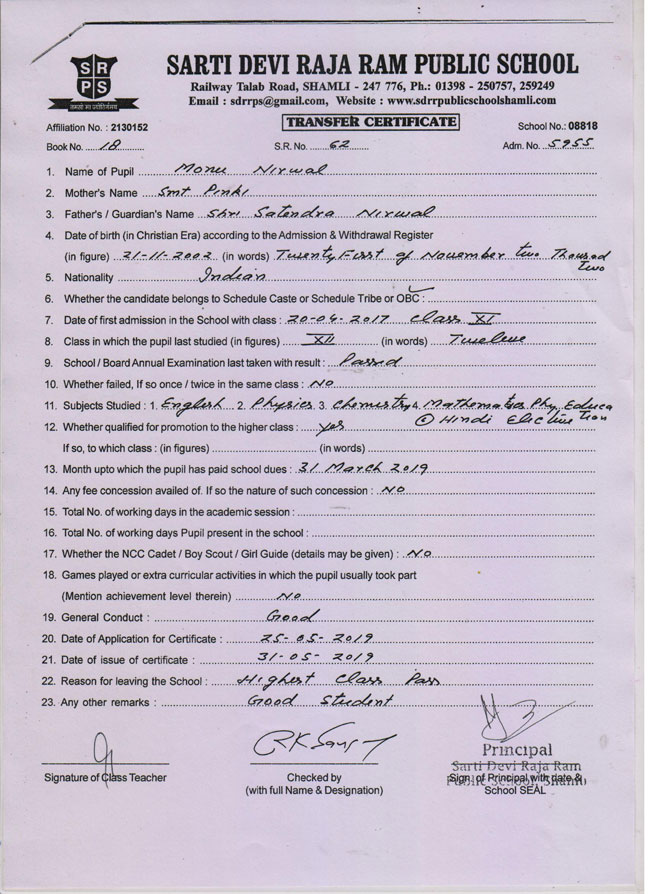 SARTI DEVI RAJA RAM PUBLIC SCHOOL
SR
PS
तमसो मा ज्योतिर्गमय
Railway Talab Road, SHAMLI - 247 776, Ph.: 01398 - 250757, 259249
Email : sdrrps@gmail.com, Website : www.sdrrpublicschoolshamli.com
TRANSFER CERTIFICATE
Affiliation No. : 2130152 School No.: 08818
Book No. 18 S.R. No. 62 Adm. No. 5955
1. Name of Pupil Monu Nirwal
2. Mother's Name Smt Pinki
3. Father's / Guardian's Name Shri Satendra Nirwal
4. Date of birth (in Christian Era) according to the Admission & Withdrawal Register
(in figure) 21-11-2002 (in words) Twenty First of November two Thousand two
5. Nationality Indian
6. Whether the candidate belongs to Schedule Caste or Schedule Tribe or OBC : ✓
7. Date of first admission in the School with class : 20-04-2017 Class XI
8. Class in which the pupil last studied (in figures) XII (in words) Twelve
9. School / Board Annual Examination last taken with result : Passed
10. Whether failed, If so once / twice in the same class : No
11. Subjects Studied : 1. English 2. Physics 3. Chemistry 4. Mathematics Phy. Education
12. Whether qualified for promotion to the higher class : yes Hindi Elective
If so, to which class : (in figures) (in words)
13. Month upto which the pupil has paid school dues : 31 March 2019
14. Any fee concession availed of. If so the nature of such concession : No
15. Total No. of working days in the academic session :
16. Total No. of working days Pupil present in the school :
17. Whether the NCC Cadet / Boy Scout / Girl Guide (details may be given) : No
18. Games played or extra curricular activities in which the pupil usually took part
(Mention achievement level therein) No
19. General Conduct : Good
20. Date of Application for Certificate : 25-05-2019
21. Date of issue of certificate : 31-05-2019
22. Reason for leaving the School : Highest Class Pass
23. Any other remarks : Good Student
Principal
Sarti Devi Raja Ram
Public School, Shamli
Signature of Class Teacher Checked by Sign. of Principal with date &
(with full Name & Designation) School SEAL